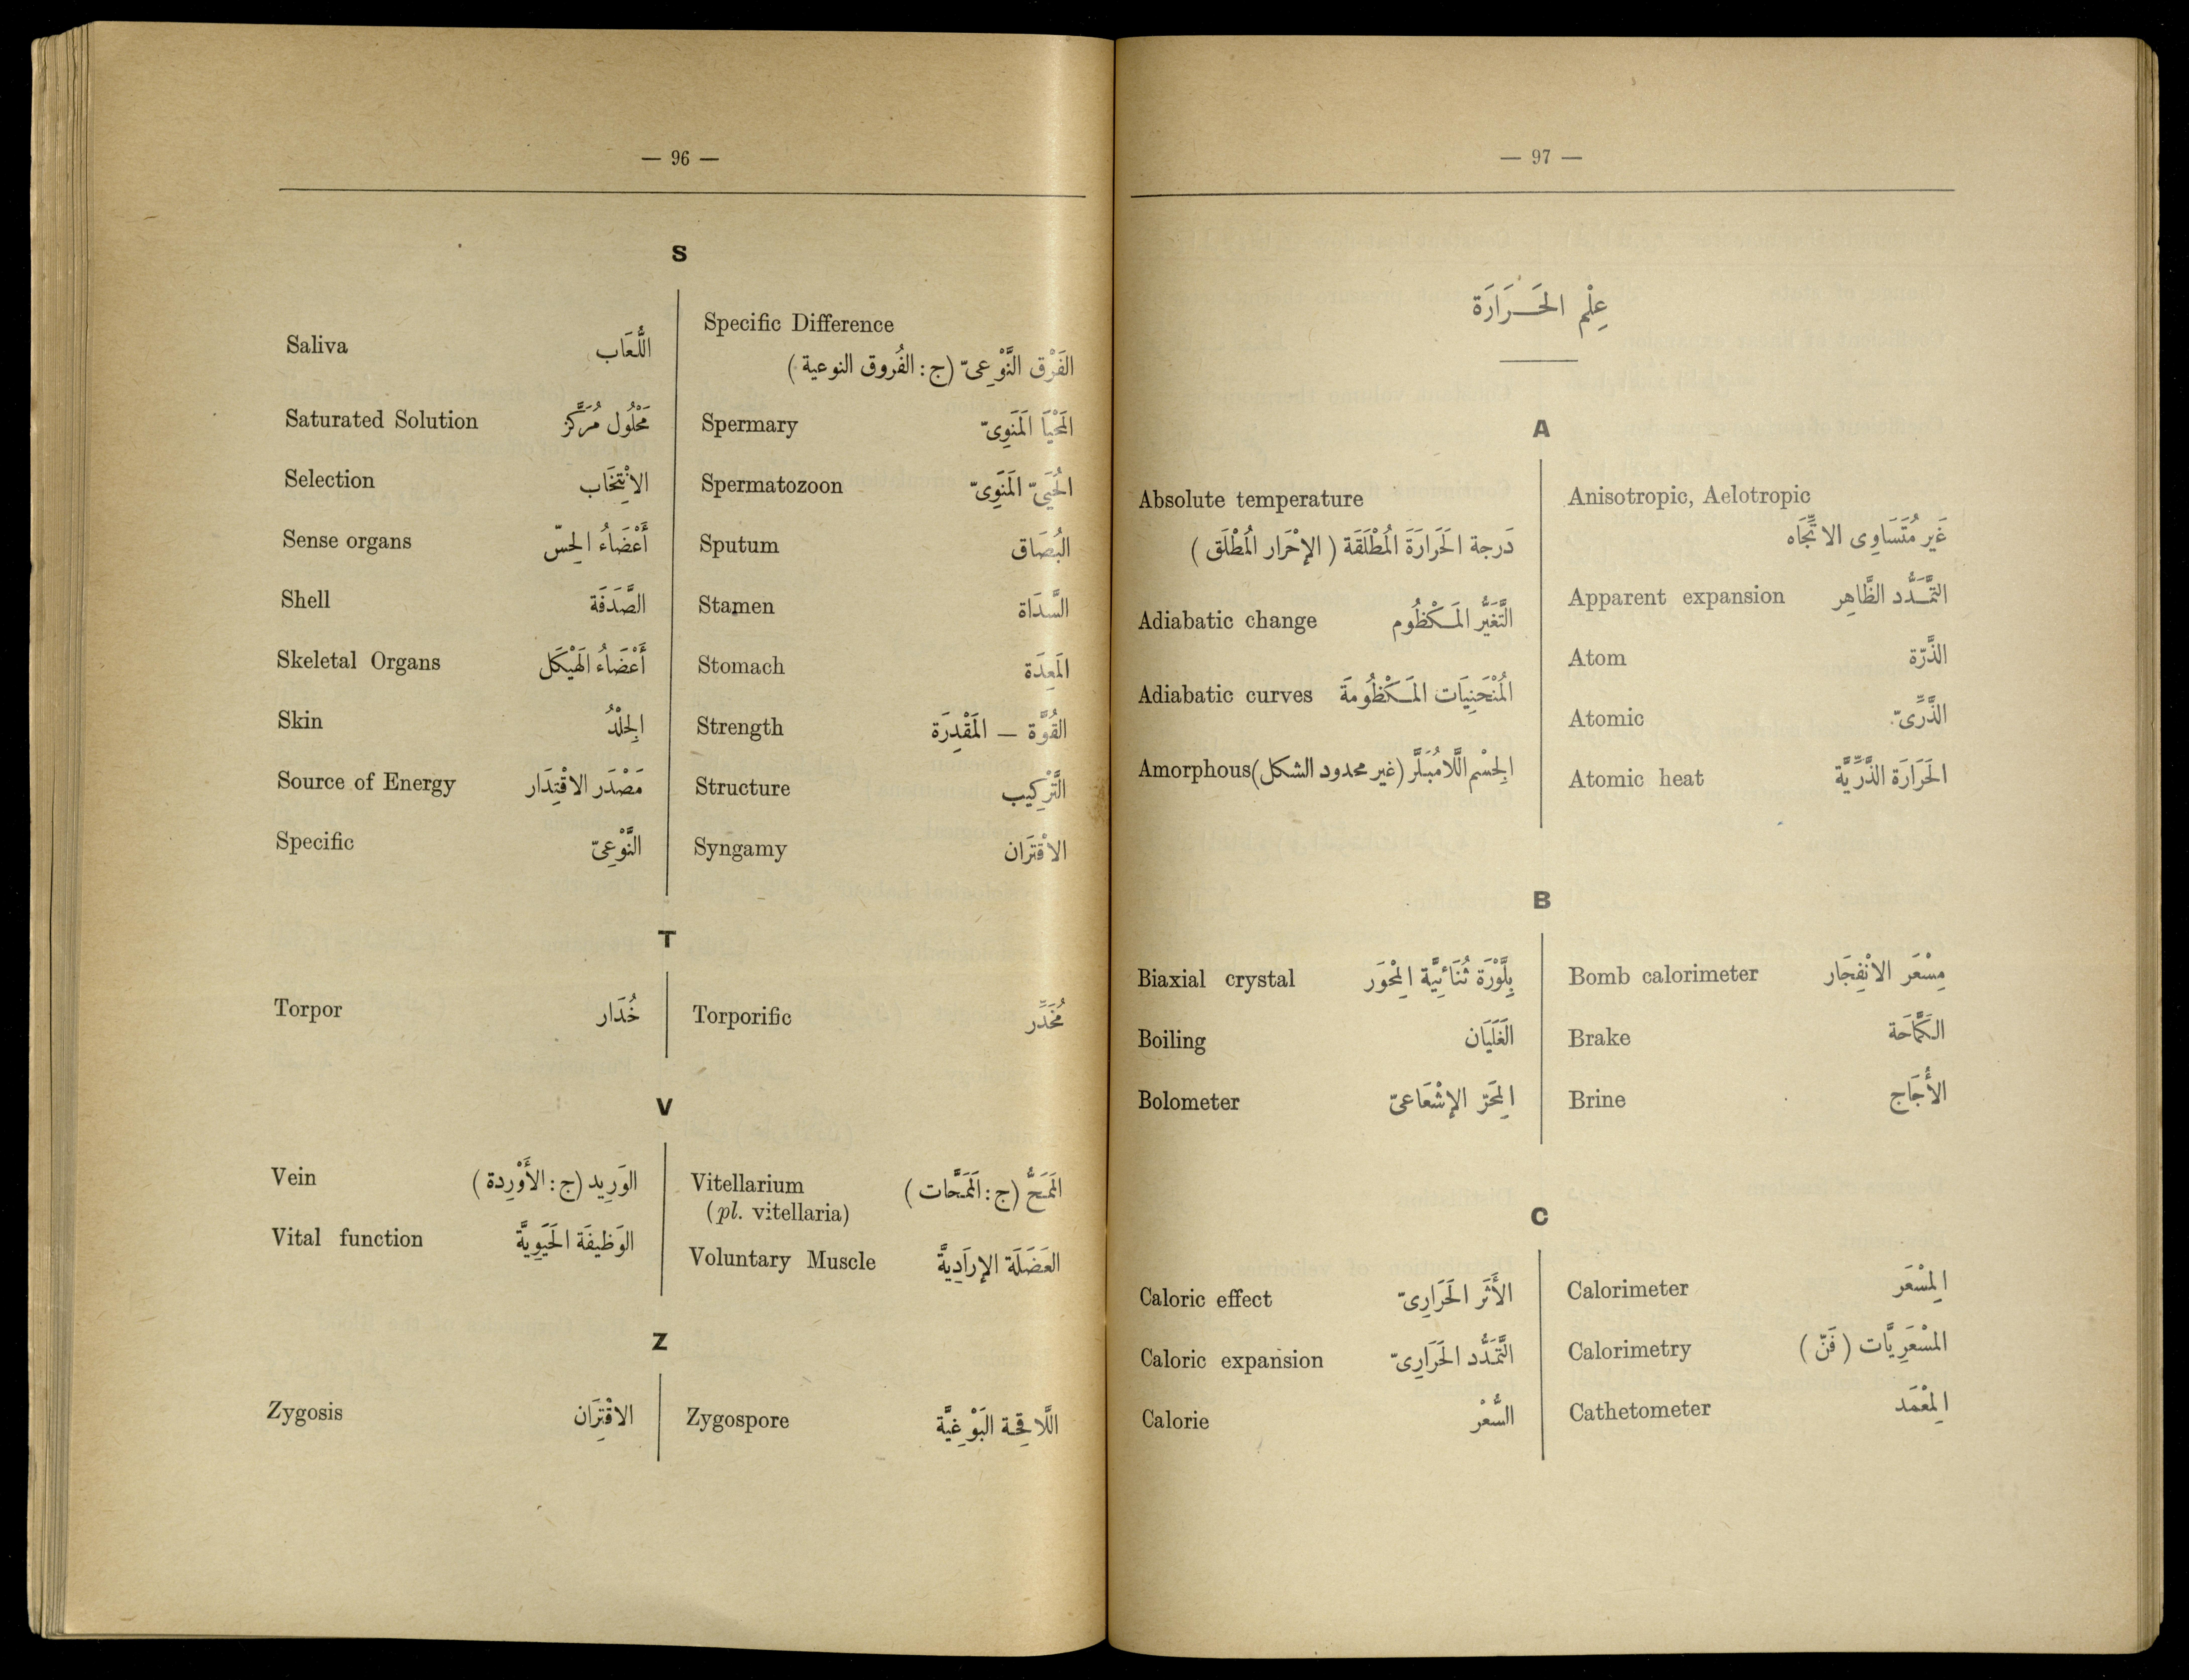 — 96 —
S
Saliva اللُّعَاب
Saturated Solution مَحْلُول مُرَكَّز
Selection الانْتِخَاب
Sense organs أَعْضَاءُ الحِسّ
Shell الصَّدَفَة
Skeletal Organs أَعْضَاءُ الهَيْكَل
Skin الجِلْدُ
Source of Energy مَصْدَر الاقْتِدَار
Specific النَّوْعِىّ
Specific Difference
الفَرْق النَّوْعِىّ (ج: الفُروق النوعية)
Spermary المَحْيَا المَنَوِىّ
Spermatozoon الحُيَىّ المَنَوِىّ
Sputum البُصَاق
Stamen السَّدَاة
Stomach المَعِدَة
Strength القُوَّة — المَقْدِرَة
Structure التَّرْكِيب
Syngamy الاقْتَرَان
T
Torpor خُدَار
Torporific مُخَدِّر
V
Vein الوَرِيد (ج: الأَوْرِدة)
Vital function الوَظيفَة الحَيَوِيَّة
Vitellarium المَمَحُّ (ج: المَمَحَّات)
(pl. vitellaria)
Voluntary Muscle العَضَلَة الإرَادِيَّة
Z
Zygosis الاقْتِرَان
Zygospore اللَّاقِحَة البَوْغِيَّة
— 97 —
عِلْم الحَرَارَة
A
Absolute temperature
دَرجة الحَرَارَة المُطْلَقَة (الإحْرَار المُطْلَق)
Adiabatic change التَّغَيُّر المَكْظُوم
Adiabatic curves المُنْحَنِيَات المَكْظُومَة
Amorphous الجِسْم اللَّامُبَلَّر (غير محدود الشكل)
Anisotropic, Aelotropic
غَير مُتَسَاوِى الاتِّجَاه
Apparent expansion التَّمَدُّد الظَّاهِر
Atom الذَّرّة
Atomic الذَّرِّىّ
Atomic heat الحَرَارَة الذَّرِّيَّة
B
Biaxial crystal بِلَّوْرَة ثُنَائِيَّة المِحْوَر
Boiling الغَلَيَان
Bolometer المِحَرّ الإشْعَاعىّ
Bomb calorimeter مِسْعَر الانْفِجَار
Brake الكَمَّاحَة
Brine الأُجَاج
C
Caloric effect الأَثَر الحَرَارِىّ
Caloric expansion التَّمَدُّد الحَرَارِىّ
Calorie السُّعْر
Calorimeter المِسْعَر
Calorimetry المسْعَرِيَّات (فَنّ)
Cathetometer المِعْمَد